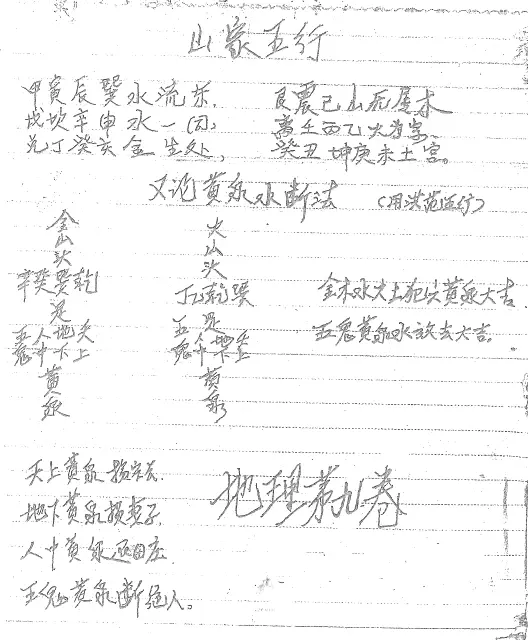 山家五行
甲寅辰巽水流东,
艮震己山死属木
戌坎辛申水一同,
离壬丙乙火为宗、
兑丁癸亥金生处,
癸丑坤庚未土宫。
又论黄泉水断法
(用洪范五行)
金山头
辛癸巽乾
是
五鬼 人中 地下 天上
黄泉
火山头
丁乙乾巽
是
五鬼 人中 地下 天上
黄泉
金木水火土犯此黄泉大吉
五鬼黄泉水放去大吉。
天上黄泉损家长.
地下黄泉损妻子.
人中黄泉退田庄.
五鬼黄泉断绝人。
地理第九卷